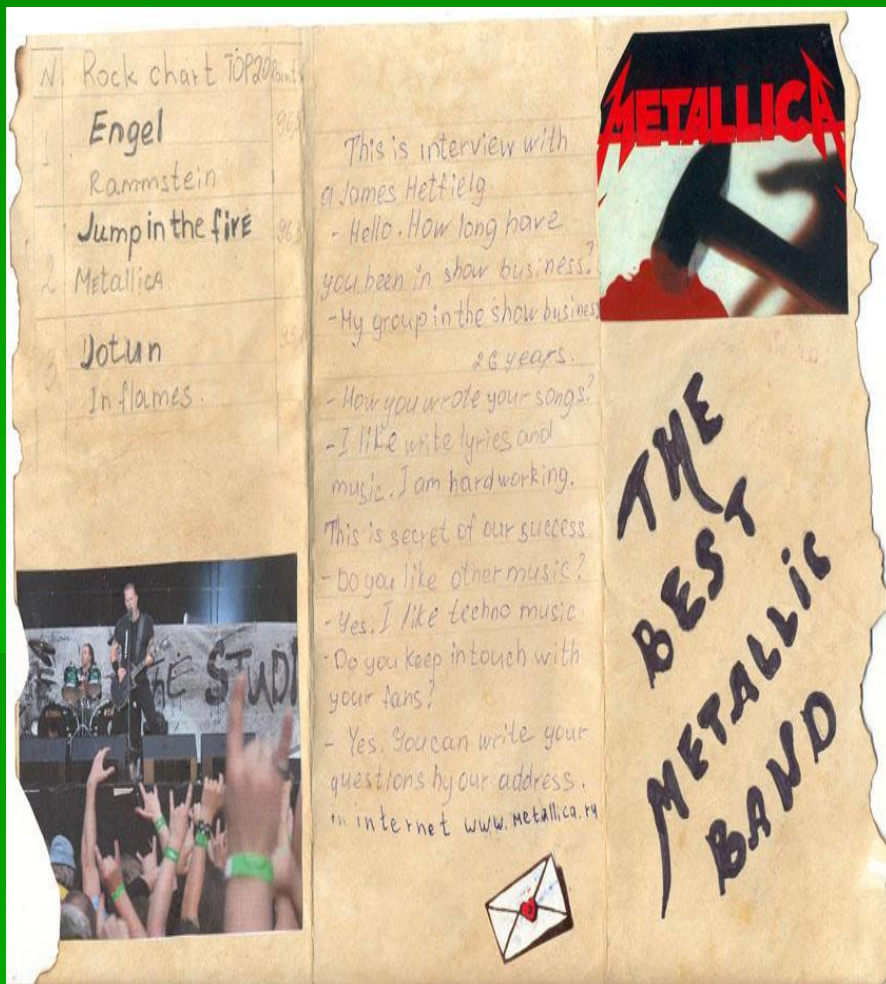 N Rock chart TOP20 Points
1 Engel 965
Rammstein
2 Jump in the fire 963
MetallicA.
3 Jotun
In flames.
THE STUDI
This is interview with
a James Hetfielg
- Hello. How long have
you been in show business?
- My group in the show business
26 years.
- How you wrote your songs?
- I like write lyrics and
music. I am hardworking.
This is secret of our success
- Do you like other music?
- Yes. I like techno music
- Do you keep in touch with
your fans?
- Yes. You can write your
questions by our address.
in internet www.metallica.ry
METALLICA
THE
BEST
METALLIC
BAND